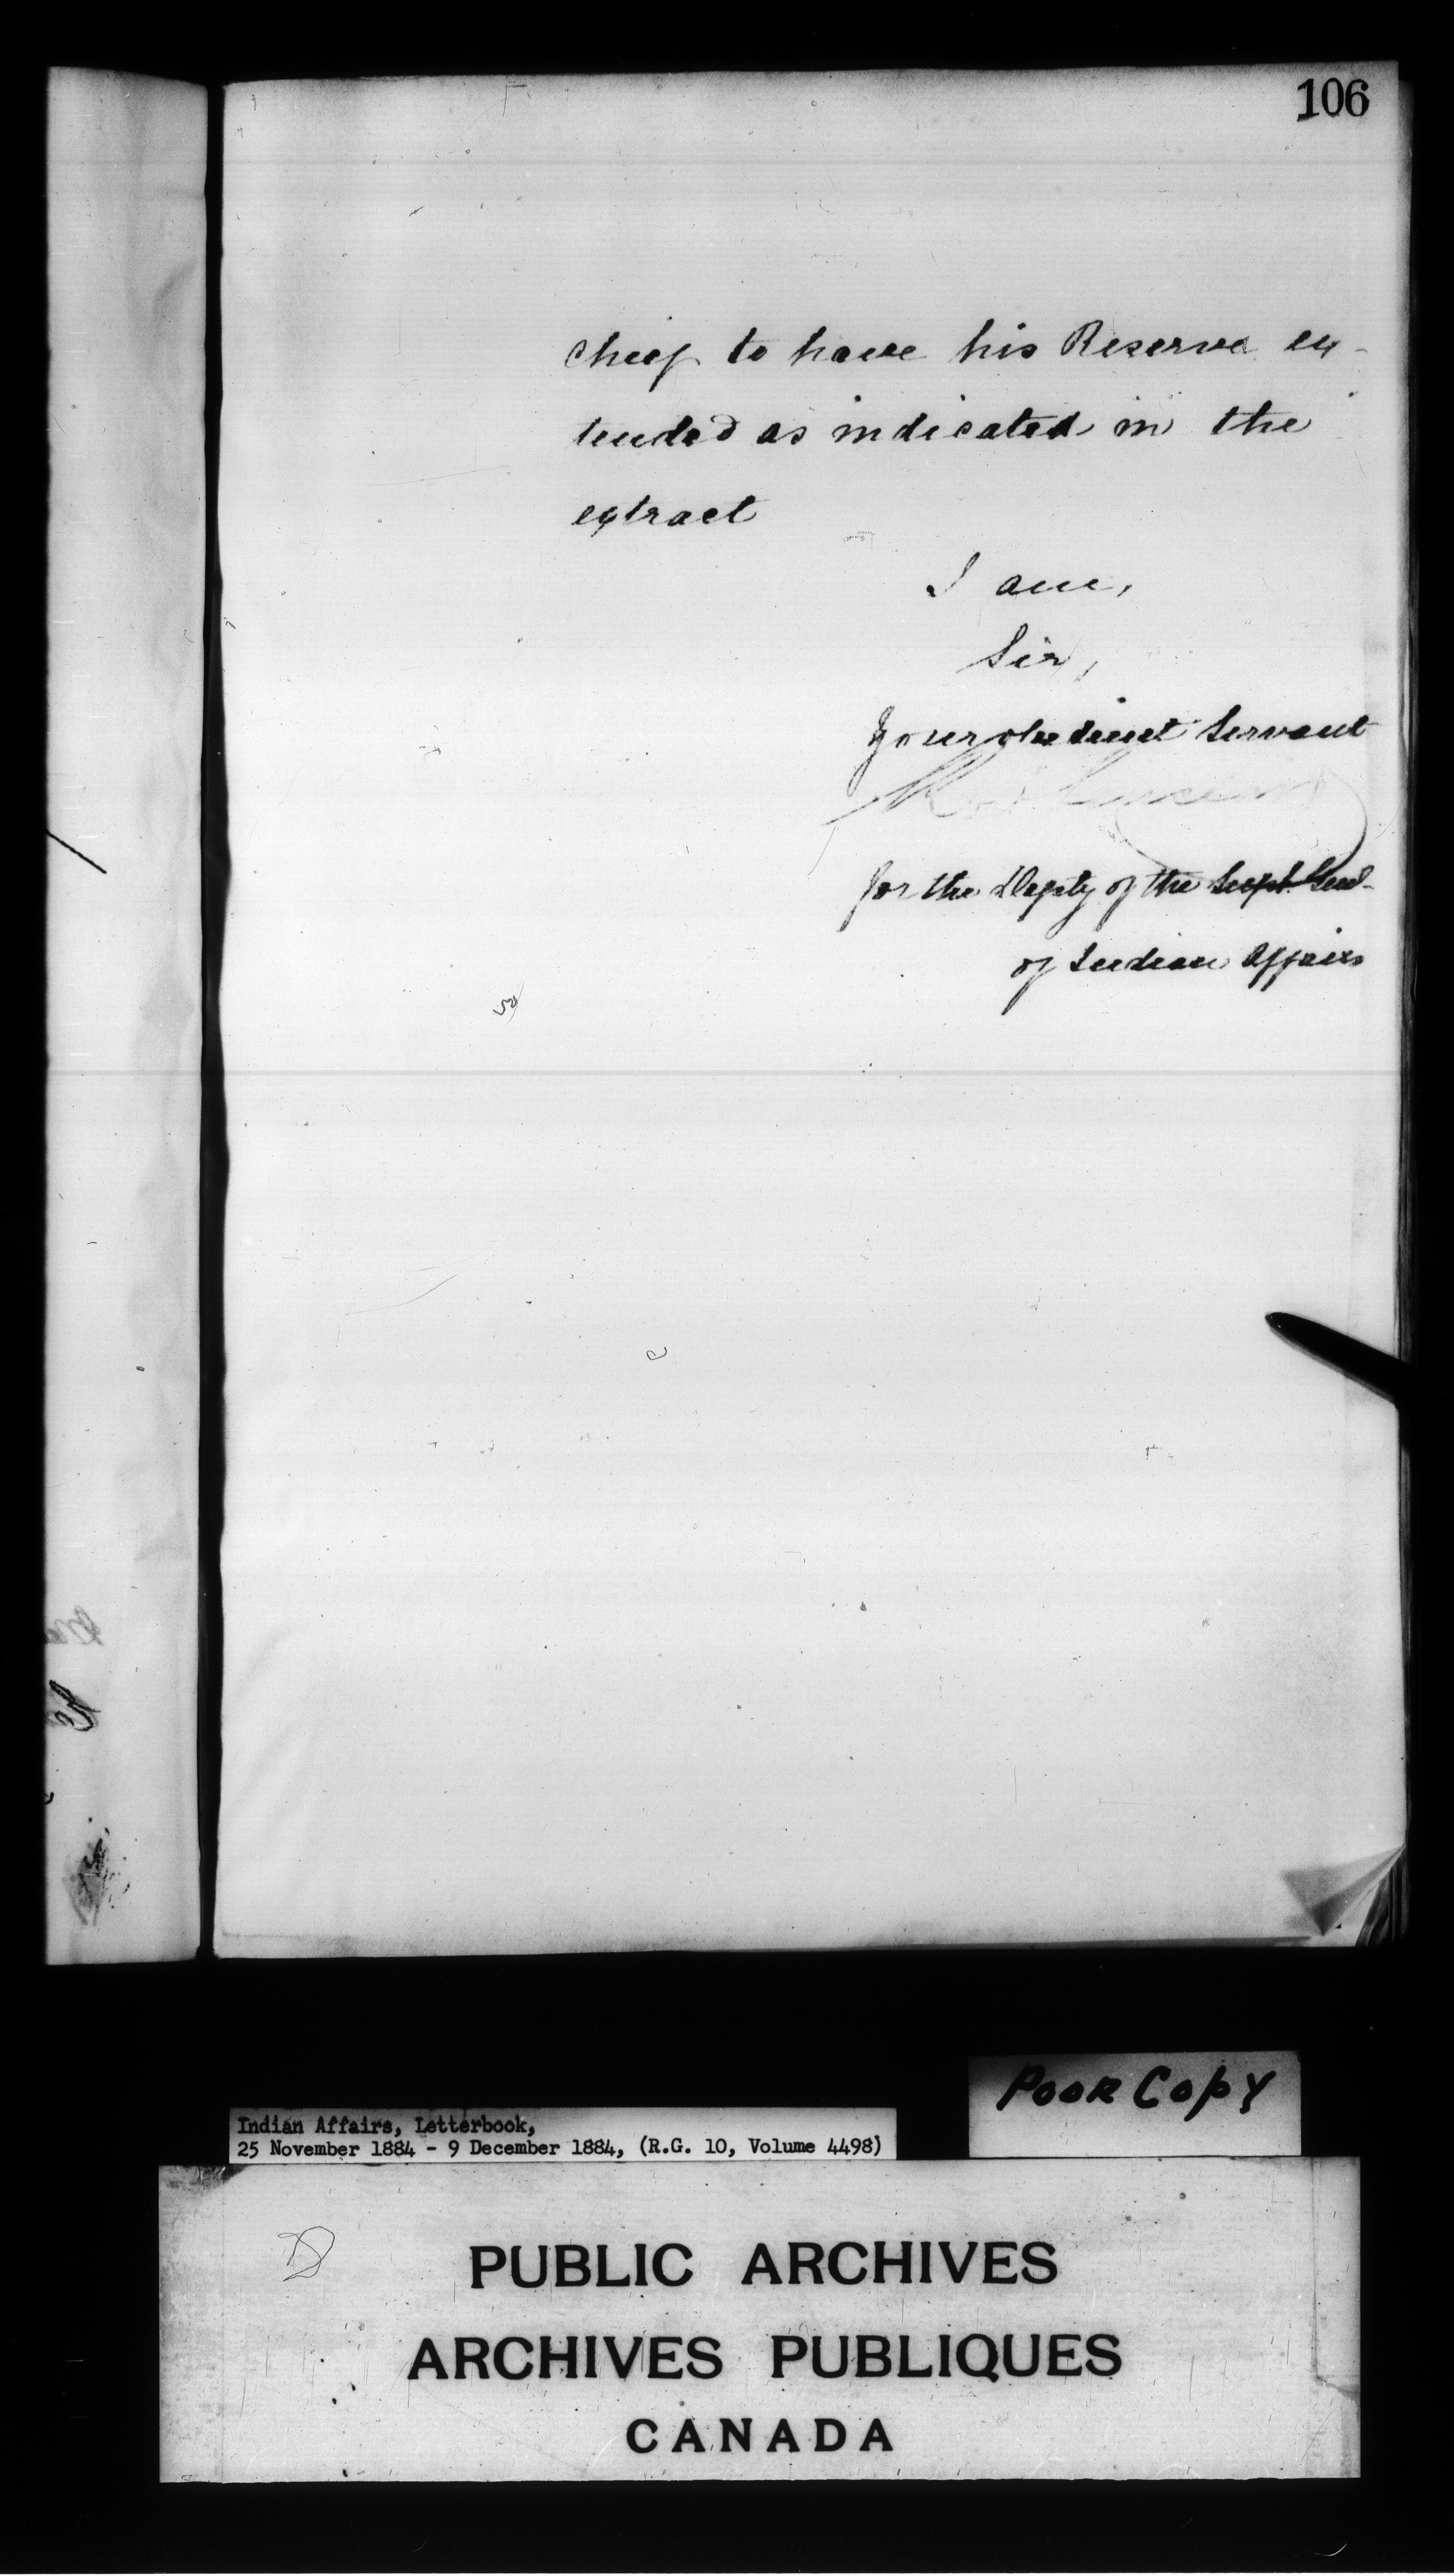 106
Chief to have his Reserve ex-
tended as indicated in the
extract
I am,
Sir,
Your obedient Servant
for the Depty of the Supt. Genl.
of Indian Affairs
Poor Copy
Indian Affairs, Letterbook,
25 November 1884 - 9 December 1884, (R.G. 10, Volume 4498)
PUBLIC ARCHIVES
ARCHIVES PUBLIQUES
CANADA